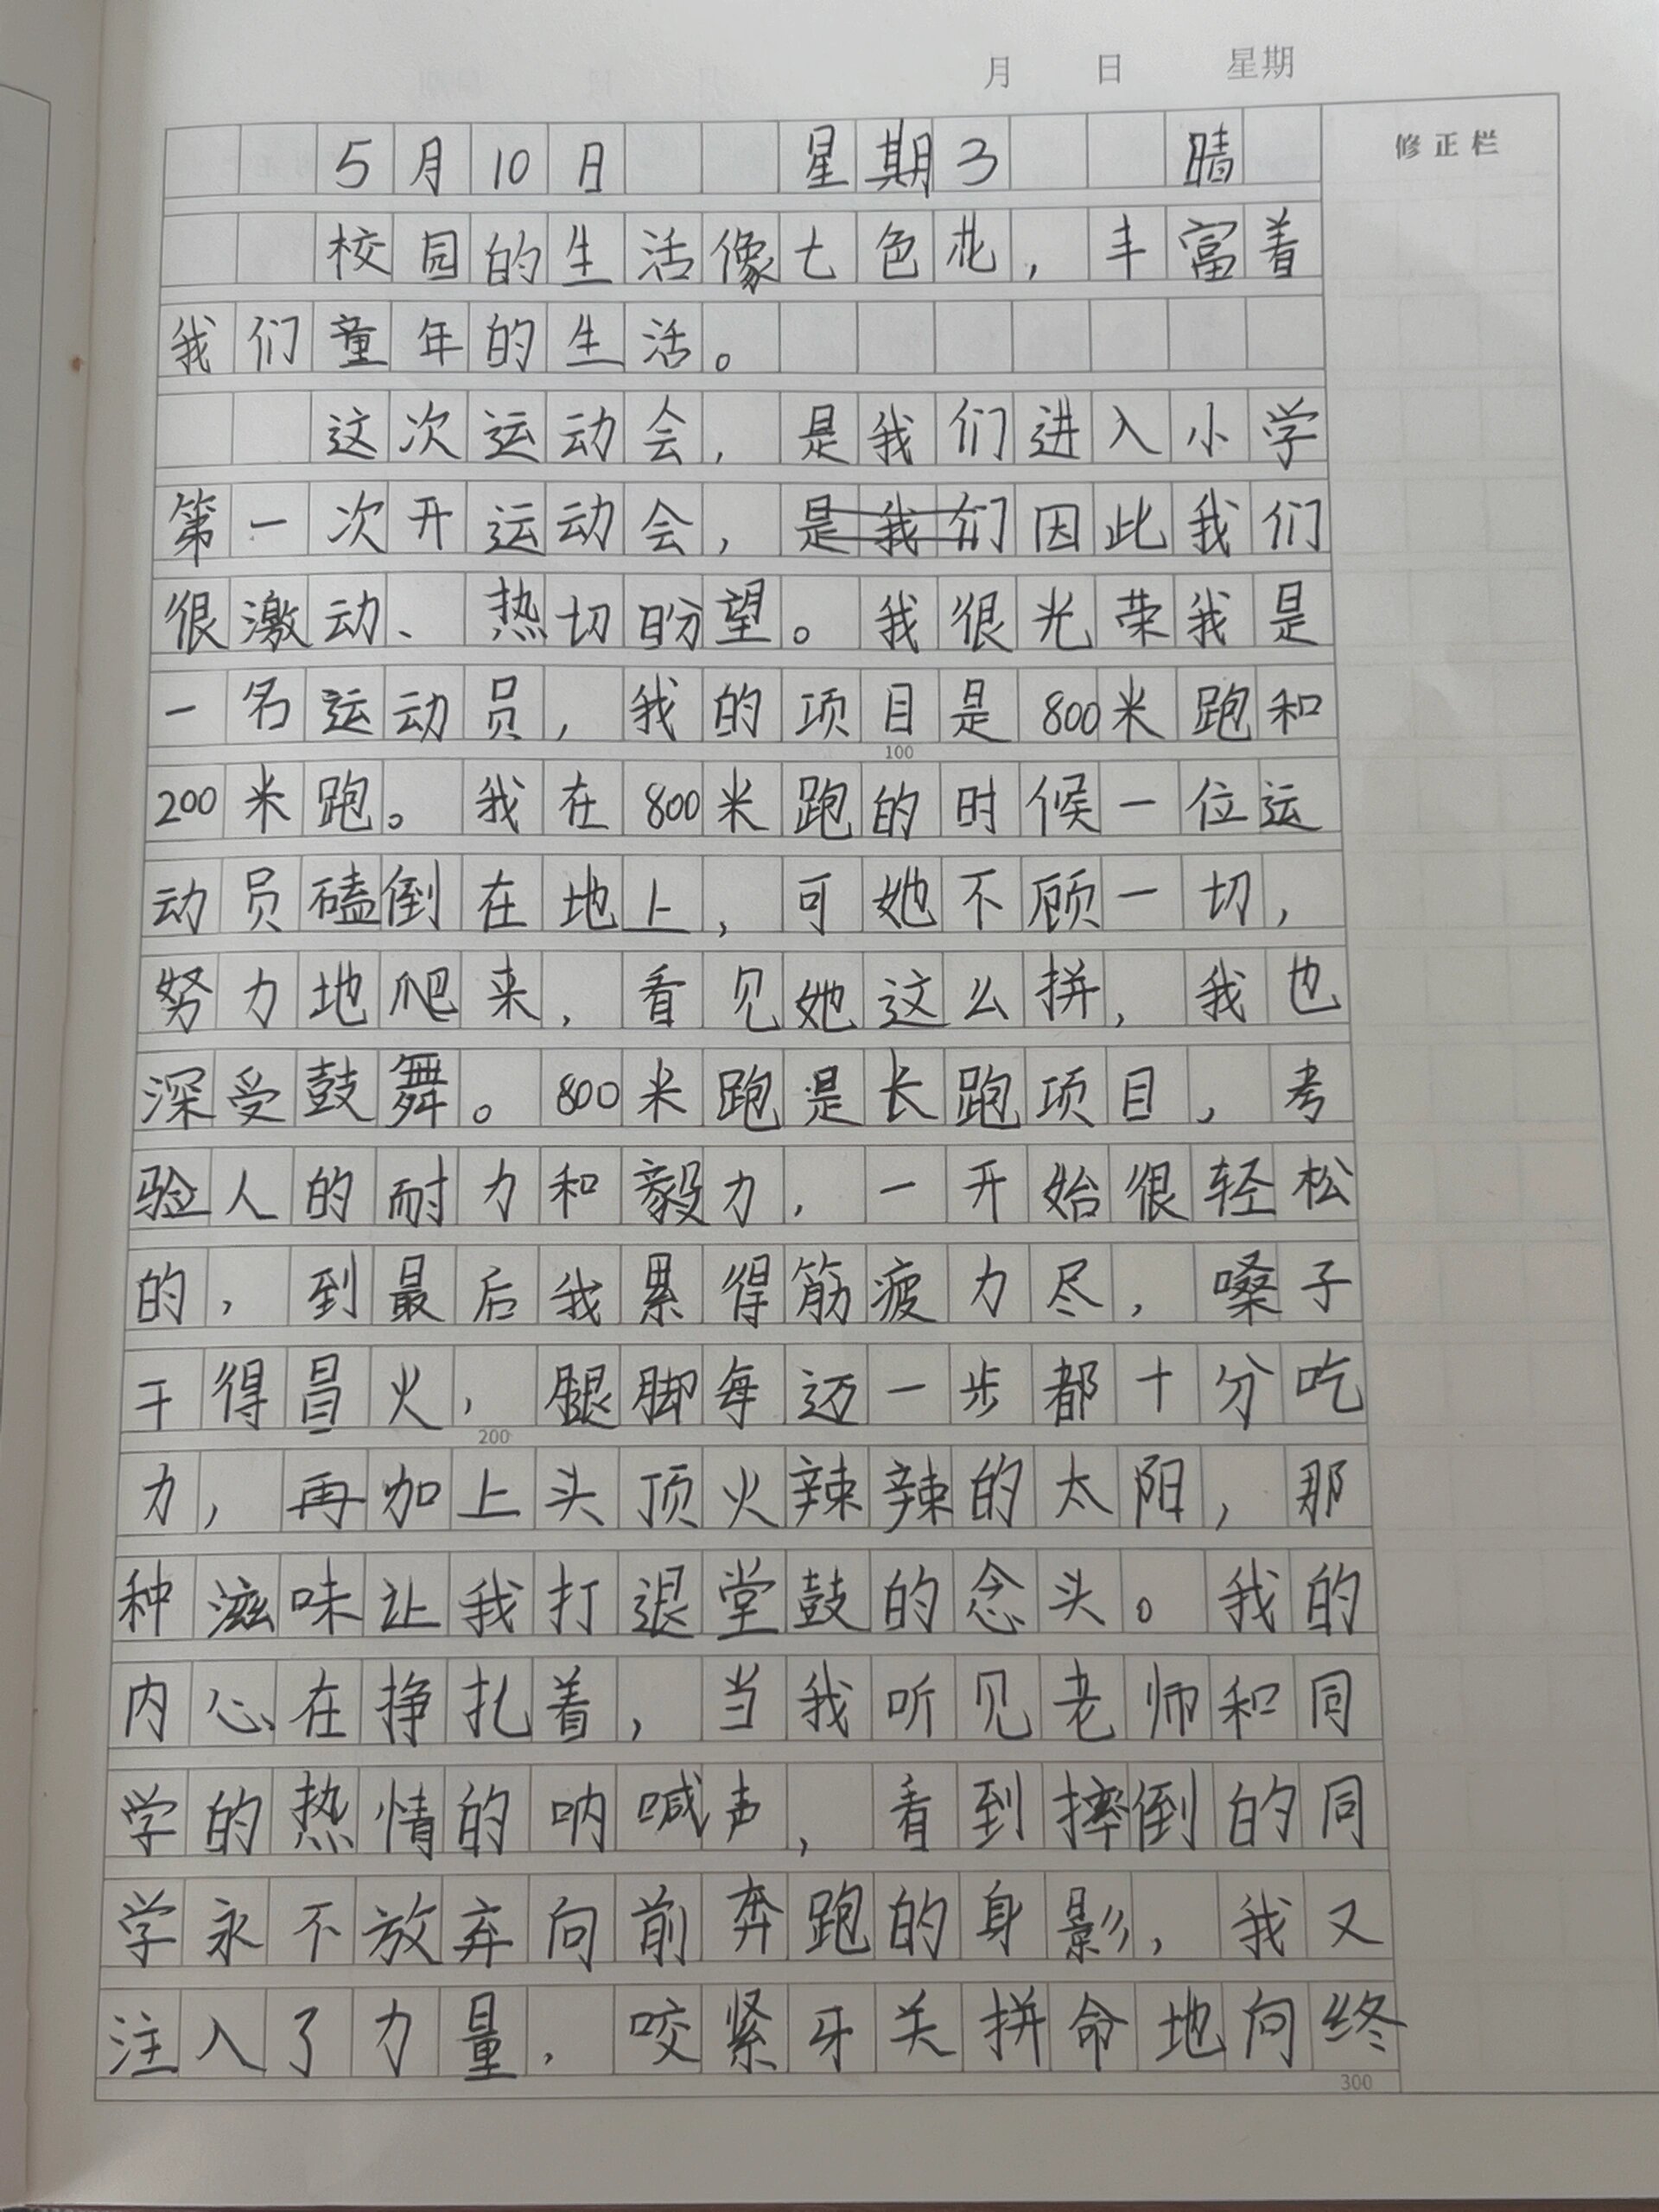 月 日 星期
修正栏
5月10日 星期3 晴
校园的生活像七色花,丰富着
我们童年的生活。
这次运动会,是我们进入小学
第一次开运动会,是我们因此我们
很激动、热切盼望。我很光荣我是
一名运动员,我的项目是800米跑和
100
200米跑。我在800米跑的时候一位运
动员磕倒在地上,可她不顾一切,
努力地爬来,看见她这么拼,我也
深受鼓舞。800米跑是长跑项目,考
验人的耐力和毅力,一开始很轻松
的,到最后我累得筋疲力尽,嗓子
干得冒火,腿脚每迈一步都十分吃
200
力,再加上头顶火辣辣的太阳,那
种滋味让我打退堂鼓的念头。我的
内心在挣扎着,当我听见老师和同
学的热情的呐喊声,看到摔倒的同
学永不放弃向前奔跑的身影,我又
注入了力量,咬紧牙关拼命地向终
300